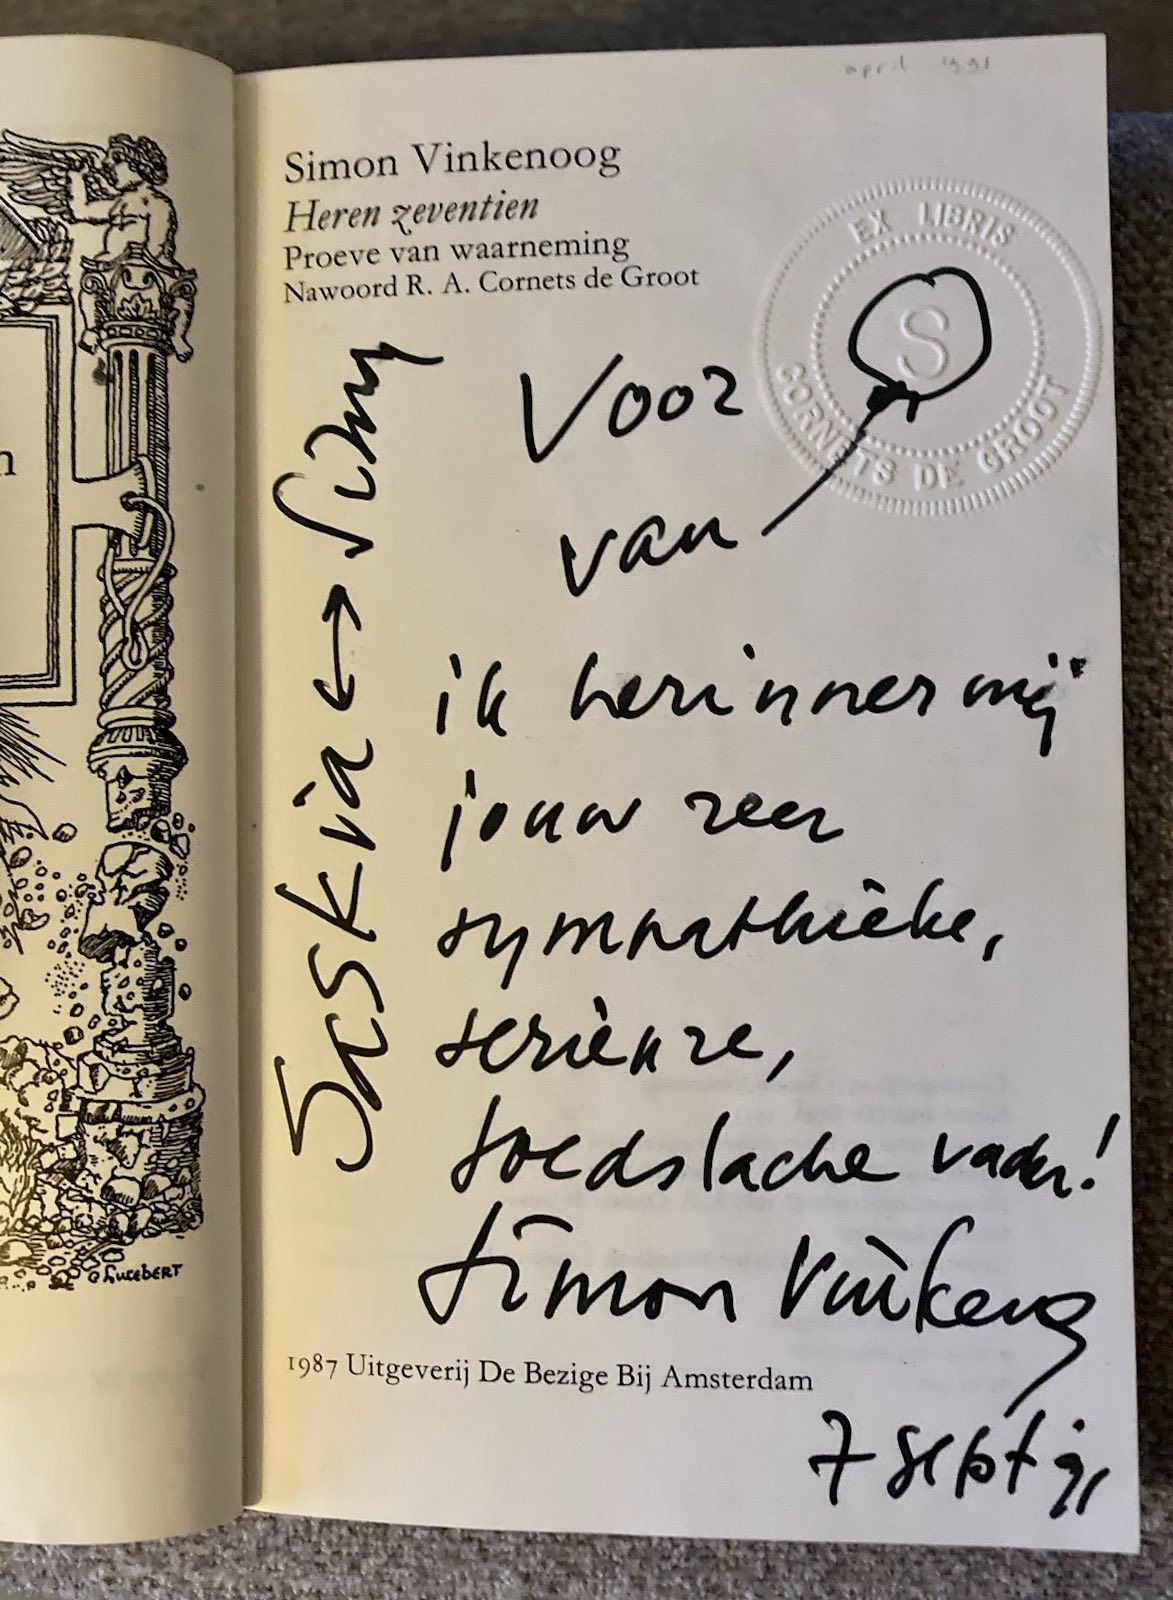 april 1991
Simon Vinkenoog
Heren zeventien
Proeve van waarneming
Nawoord R. A. Cornets de Groot
EX LIBRIS
S
CORNETS DE GROOT
Voor
van
ik herinner mij
jouw zeer
sympathieke,
serieuze,
goedslache vader!
Simon Vinkenoog
Saskia ↔
1987 Uitgeverij De Bezige Bij Amsterdam
7 sept 91
n
© Lucebert